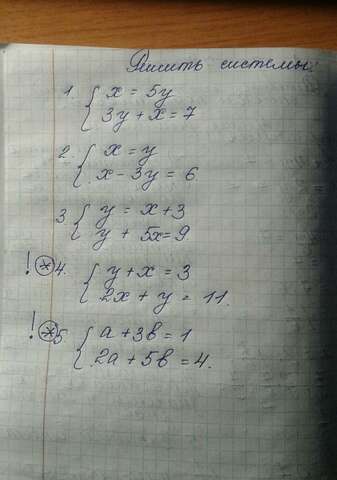 Решить системы:
1. { x = 5y
3y + x = 7
2. { x = y
x - 3y = 6
3. { y = x + 3
y + 5x = 9
! * 4. { y + x = 3
2x + y = 11.
! * 5 { a + 3b = 1
2a + 5b = 4.